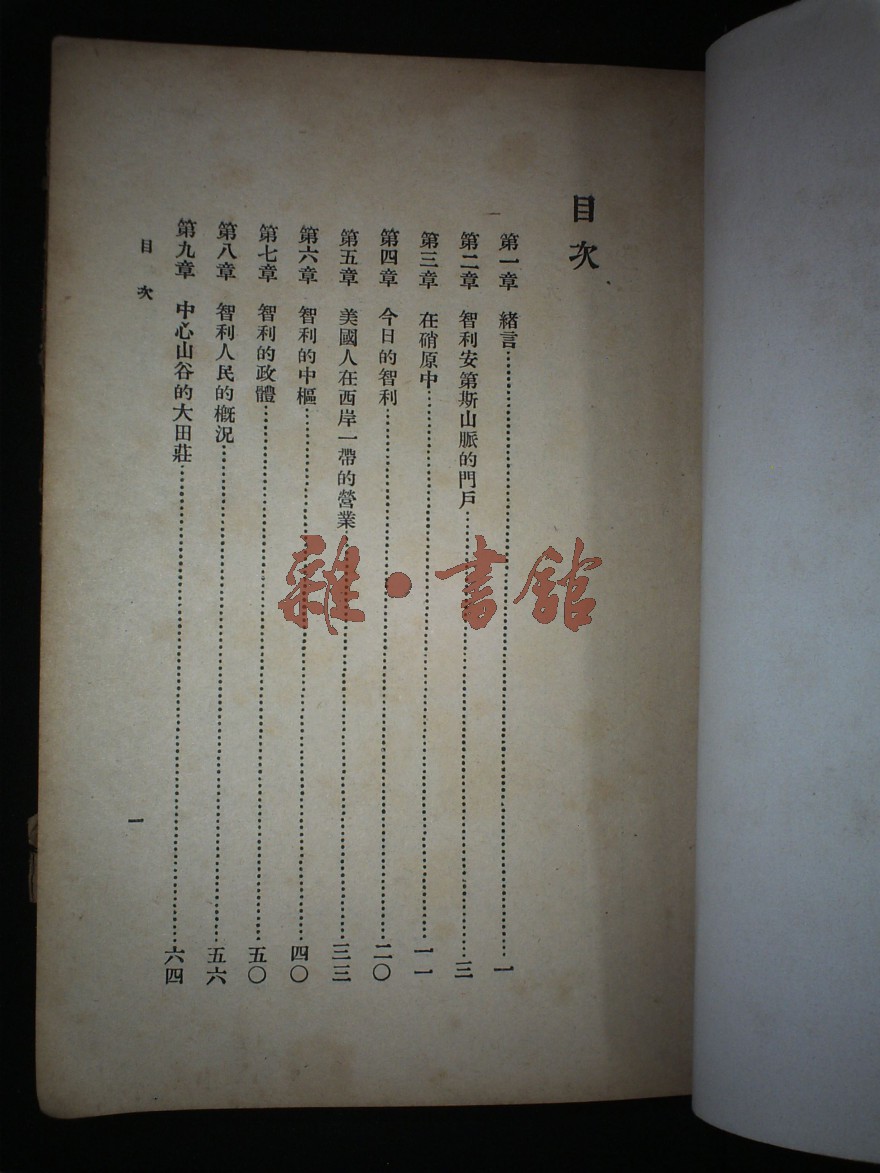 目次
第一章 緒言……一
第二章 智利安第斯山脈的門戶……三
第三章 在硝原中……一一
第四章 今日的智利……二〇
第五章 美國人在西岸一帶的營業……三三
第六章 智利的中樞……四〇
第七章 智利的政體……五〇
第八章 智利人民的概況……五六
第九章 中心山谷的大田莊……六四
目次
一
雜·書館